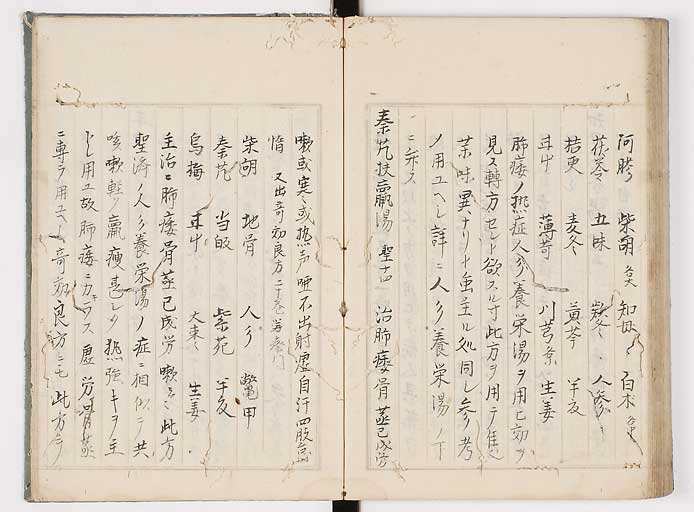 阿膠 柴胡 各大 知母 白朮 各中
茯苓 五味 人参
桔更 麦冬 黄芩 半夏
甘中 薄荷 川芎 生姜
肺痿ノ熱症人参養栄湯ヲ用ヒ効ヲ
見ス轉方セント欲スル寸此方ヲ用テ佳
薬味異ナリト虽主ル処同シ参考
ノ用ユヘシ詳ニ人参養栄湯ノ下
ニ弁ス
秦艽扶羸湯 聖 治肺痿骨蒸已成労
嗽或寒或热声唖不出射虚自汗四肢怠
惰 又出奇効良方二十
柴胡 地骨 人参 鱉甲
秦艽 当皈 紫苑 半夏
烏梅 甘中 大棗 生姜
主治ニ肺痿骨蒸已成労嗽 此方
聖済ノ人参養栄湯ノ症ニ相似テ共
咳嗽軽ク羸痩甚シク热強キヲ主
トシ用ユ故肺痿ニカキラス虚労骨蒸
ニ専ラ用ユヘシ奇効良方ニモ此方ヲ